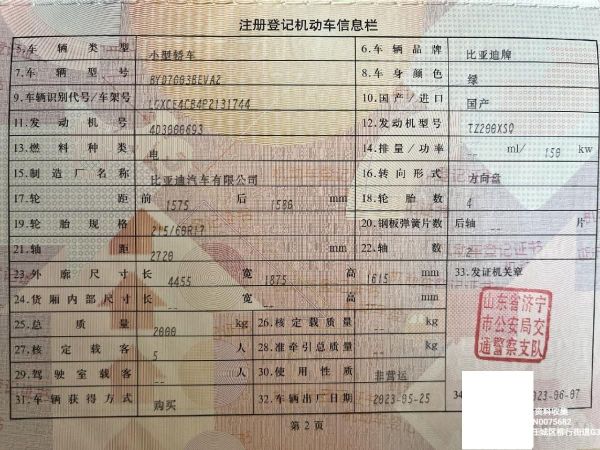 注册登记机动车信息栏
5.车辆类型 小型轿车 6.车辆品牌 比亚迪牌
7.车辆型号 BYD7003BEVA2 8.车身颜色 绿
9.车辆识别代号/车架号 LGXCE4CB4P2131744 10.国产/进口 国产
11.发动机号 4D3000693 12.发动机型号 TZ200XSQ
13.燃料种类 电 14.排量/功率 -- ml/ 150 kw
15.制造厂名称 比亚迪汽车有限公司 16.转向形式 方向盘
17.轮距 前 1575 后 1580 mm 18.轮胎数 4
19.轮胎规格 215/60R17 20.钢板弹簧片数 后轴 -- 片
21.轴距 2720 mm 22.轴数 2
23.外廓尺寸 长 4455 宽 1875 高 1615 mm 33.发证机关章
24.货厢内部尺寸 长 -- 宽 -- 高 -- mm
25.总质量 2000 kg 26.核定载质量 -- kg
27.核定载客 5 人 28.准牵引总质量 -- kg
29.驾驶室载客 -- 人 30.使用性质 非营运
31.车辆获得方式 购买 32.车辆出厂日期 2023-05-25 34 2023-06-07
山东省济宁
市公安局交
通警察支队
第2页
资料收集
N0075682
任城区柳行街道G3